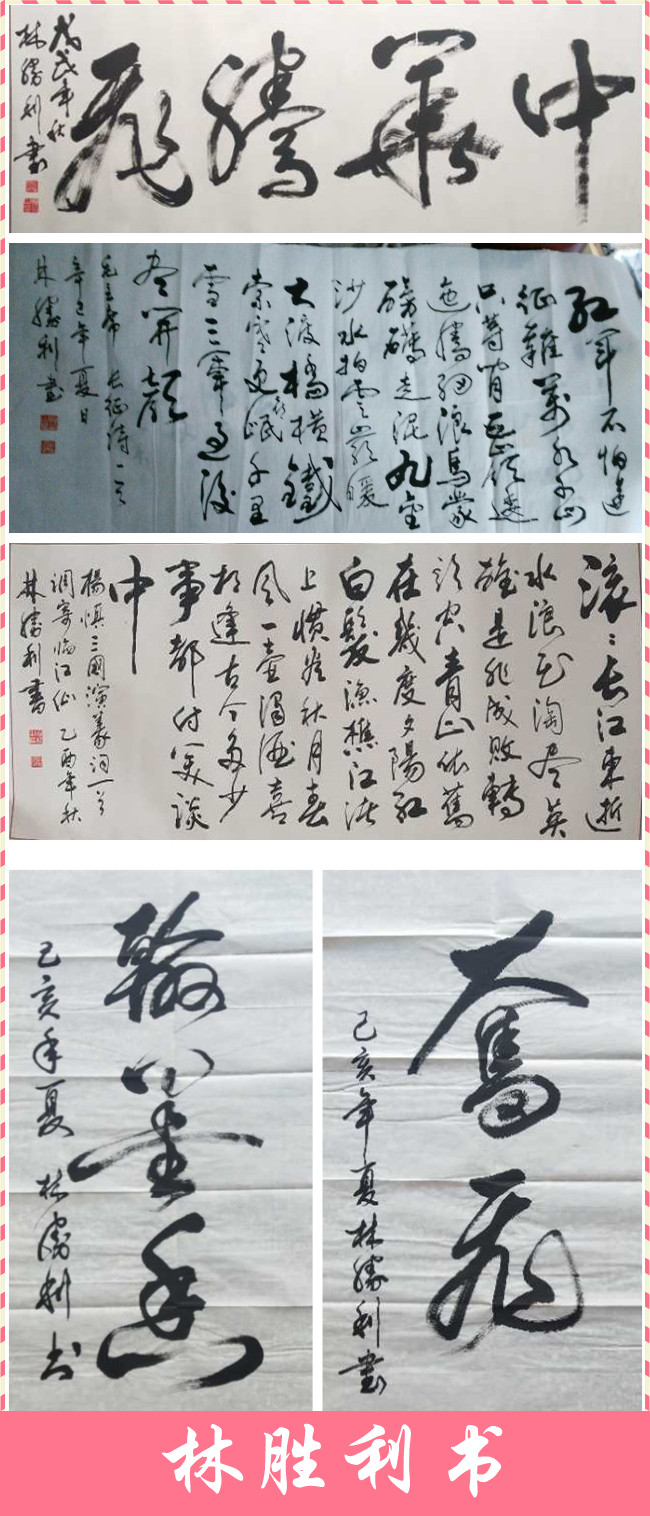 中華騰飛
戊戌年秋
林勝利書
紅軍不怕遠
征難萬水千山
只等閒五嶺逶
迤騰細浪烏蒙
磅礴走泥丸金
沙水拍雲崖暖
大渡橋橫鐵
索寒更喜岷千里
雪三軍過後
盡開顏
毛主席長征詩一首
辛巳年夏日
林勝利書
滚〻長江東逝
水浪花淘盡英
雄是非成敗轉
頭空青山依舊
在幾度夕陽紅
白髮漁樵江渚
上慣看秋月春
風一壺濁酒喜
相逢古今多少
事都付笑談
中
楊慎三國演義詞一首
調寄臨江仙乙酉年秋
林勝利書
翰墨香
己亥年夏林勝利书
奮飛
己亥年夏林勝利書
林胜利书